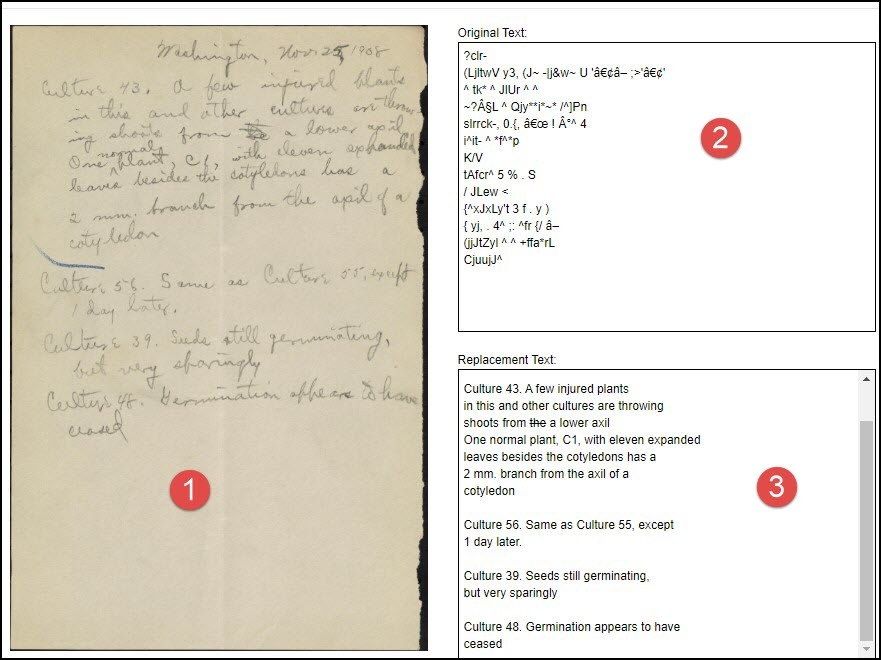 Washington, Nov. 25, 1908
Culture 43. A few injured plants
in this and other cultures are throw-
ing shoots from the a lower axil
normal
One plant, C1, with eleven expanded
leaves besides the cotyledons has a
2 mm. branch from the axil of a
cotyledon
Culture 56. Same as Culture 55, except
1 day later.
Culture 39. Seeds still germinating,
but very sparingly
Culture 48. Germination appears to have
ceased
1
Original Text:
?clr-
(LjltwV y3, (J~ -|j&w~ U 'â€¢â– ;>'â€¢'
^ tk* ^ JlUr ^ ^
~?Â§L ^ Qjy**i*~* /^]Pn
slrrck-, 0.{, â€œ ! Â°^ 4
i^it- ^ *f^*p
K/V
tAfcr^ 5 % . S
/ JLew <
{^xJxLy't 3 f . y )
{ yj, . 4^ ;: ^fr {/ â–
(jjJtZyl ^ ^ +ffa*rL
CjuujJ^
2
Replacement Text:
Culture 43. A few injured plants
in this and other cultures are throwing
shoots from the a lower axil
One normal plant, C1, with eleven expanded
leaves besides the cotyledons has a
2 mm. branch from the axil of a
cotyledon
Culture 56. Same as Culture 55, except
1 day later.
Culture 39. Seeds still germinating,
but very sparingly
Culture 48. Germination appears to have
ceased
3